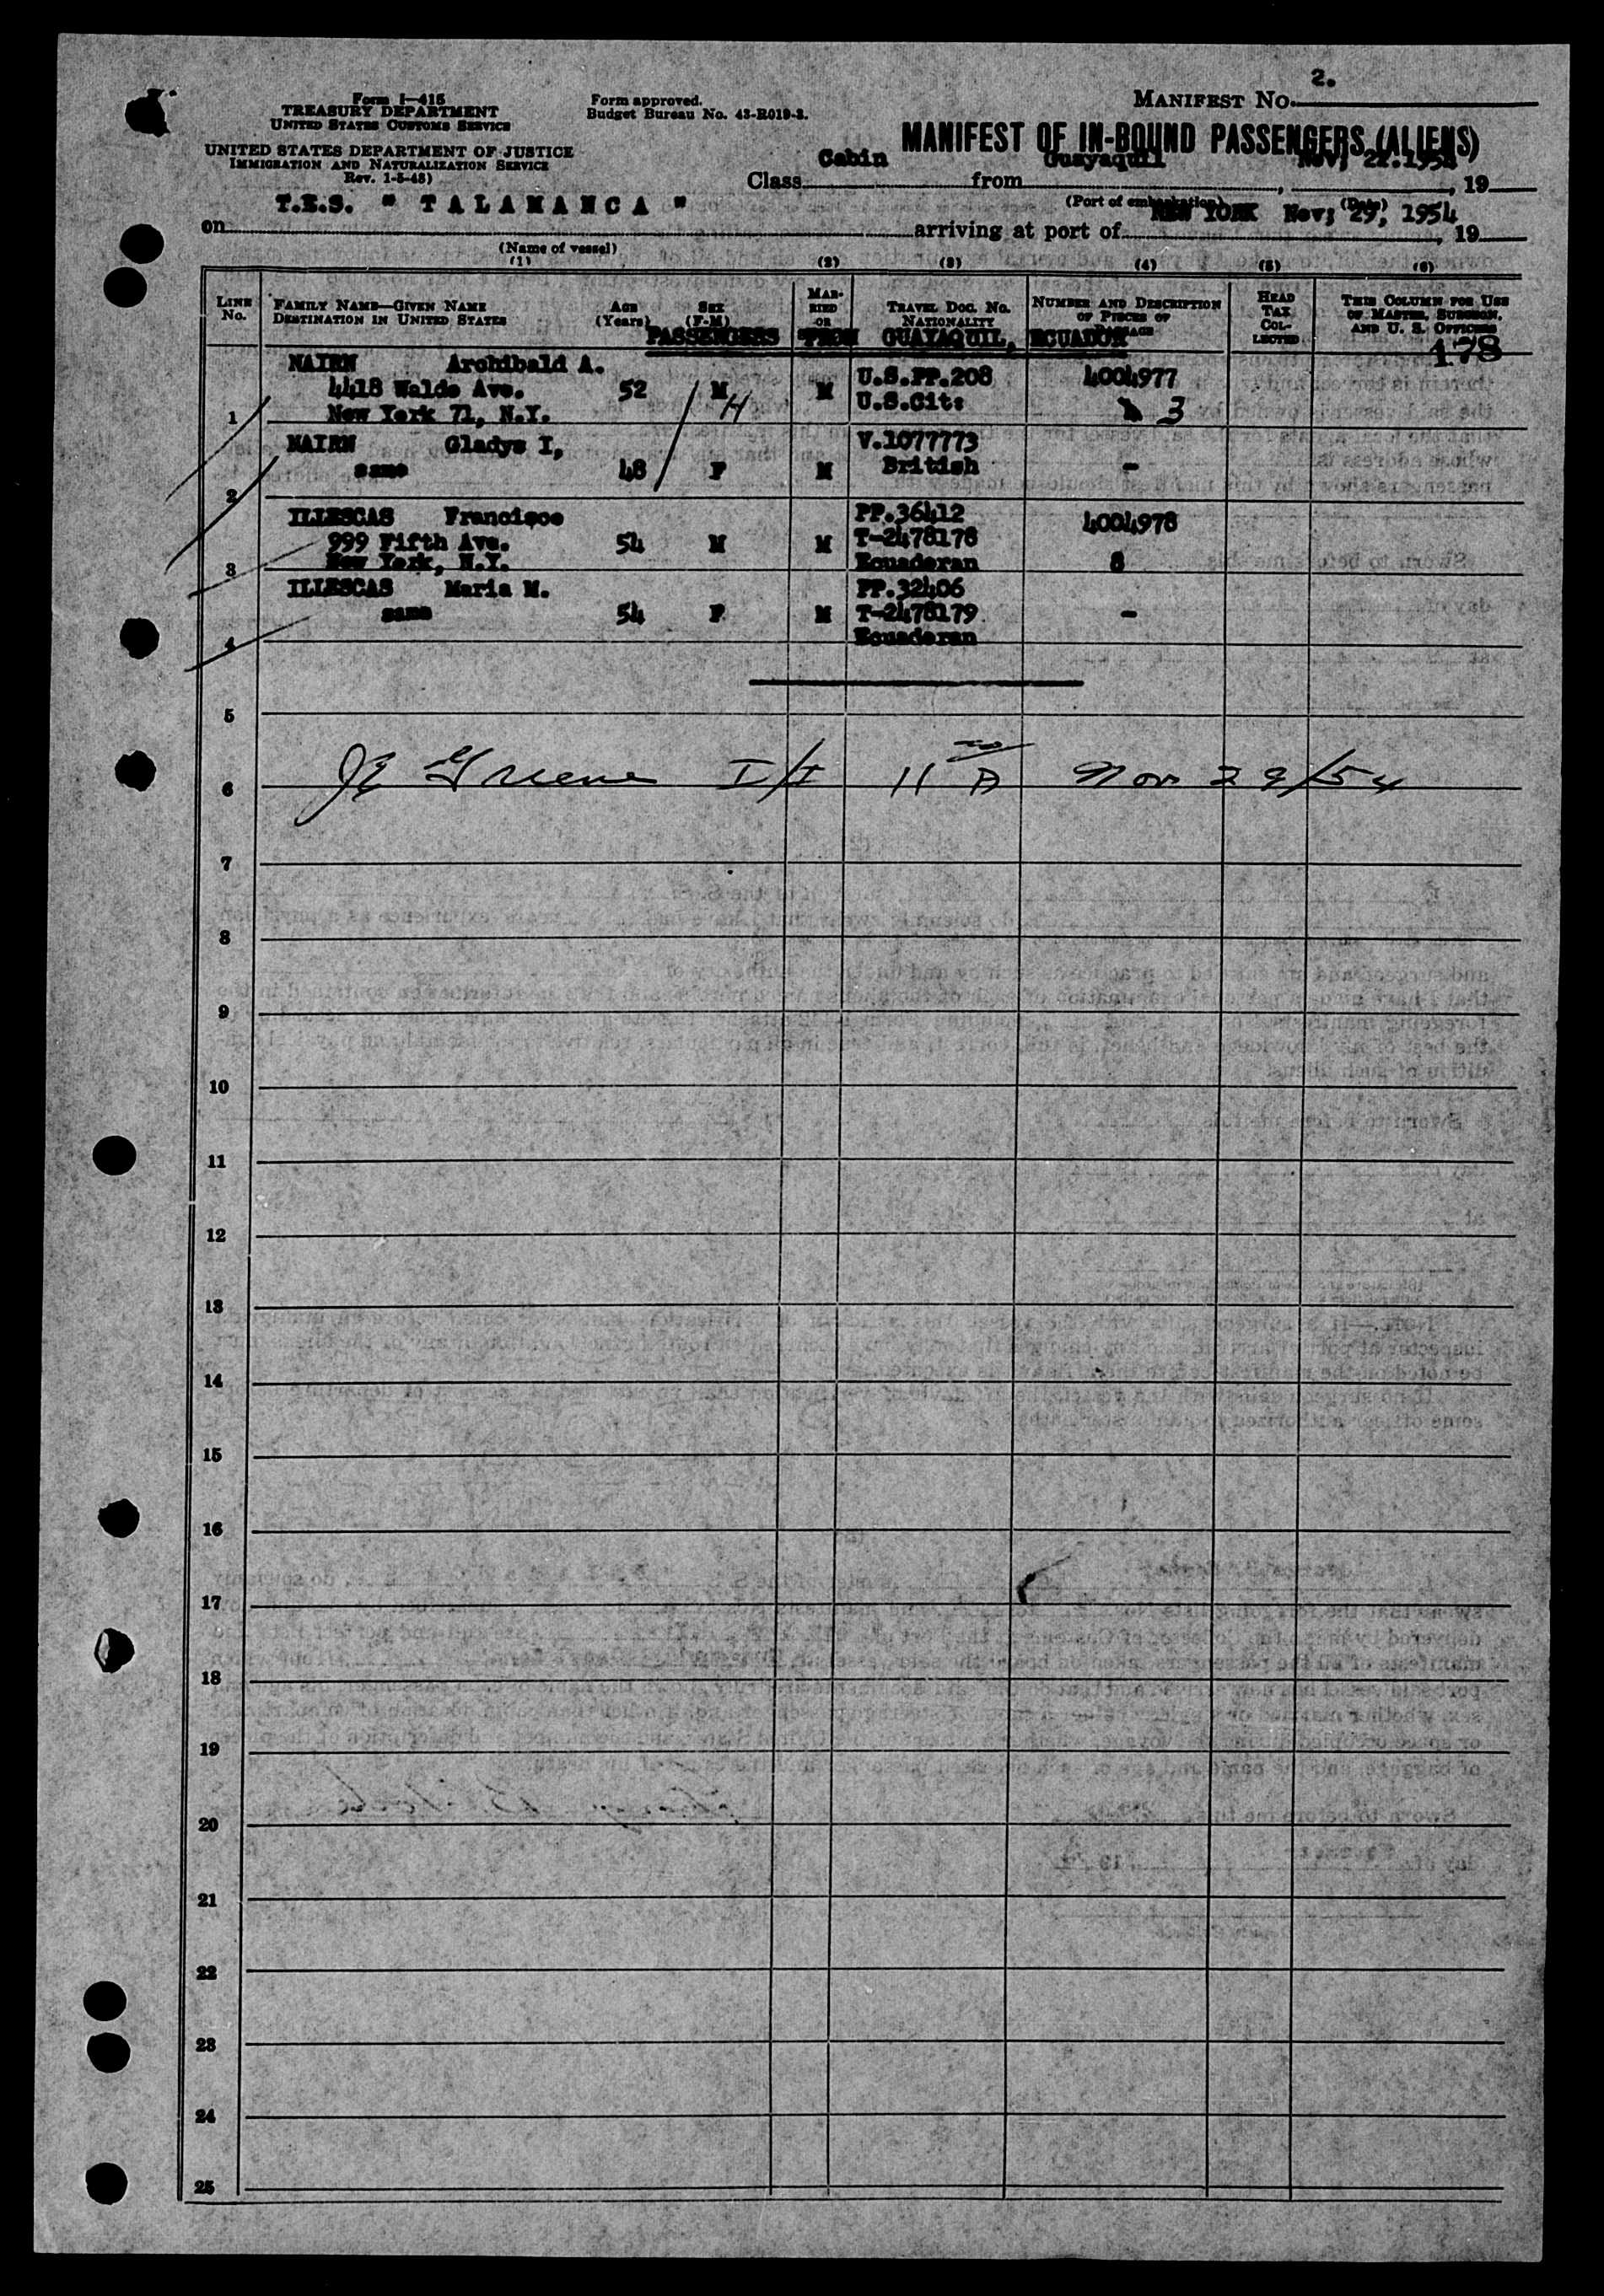 2.
Form I-415
TREASURY DEPARTMENT
UNITED STATES CUSTOMS SERVICE
Form approved.
Budget Bureau No. 43-R019-3.
MANIFEST NO.
UNITED STATES DEPARTMENT OF JUSTICE
IMMIGRATION AND NATURALIZATION SERVICE
Rev. 1-5-48)
MANIFEST OF IN-BOUND PASSENGERS (ALIENS)
Class Cabin from Guayaquil, Nov; 22.1954, 19
(Port of embarkation) (Date)
on T.E.S. " TALAMANCA " arriving at port of NEW YORK Nov; 29, 1954, 19
(Name of vessel)
(1) (2) (3) (4) (5) (6)
LINE No. FAMILY NAME—GIVEN NAME DESTINATION IN UNITED STATES AGE (Years) SEX (F-M) MARRIED OR TRAVEL DOC. NO. NATIONALITY NUMBER AND DESCRIPTION OF PIECES OF HEAD TAX COLLECTED THIS COLUMN FOR USE OF MASTER, SURGEON, AND U. S. OFFICERS
PASSENGERS FROM GUAYAQUIL, ECUADOR
178
NAIRN Archibald A. U.S.PP.208 4004977
4418 Waldo Ave. 52 M H M U.S.Cit:
1 New York 71, N.Y. 3
NAIRN Gladys I, V.1077773
same 48 F M British -
2
ILLESCAS Francisco PP.36412 4004978
999 Fifth Ave. 54 M M T-2478178
3 New York, N.Y. Ecuadoran 8
ILLESCAS Maria M. PP.32406
same 54 F M T-2478179 -
4 Ecuadoran
5
6 Greene I/I 11 A Nov 29/54
7
8
9
10
11
12
13
14
15
16
17
18
19
20
21
22
23
24
25